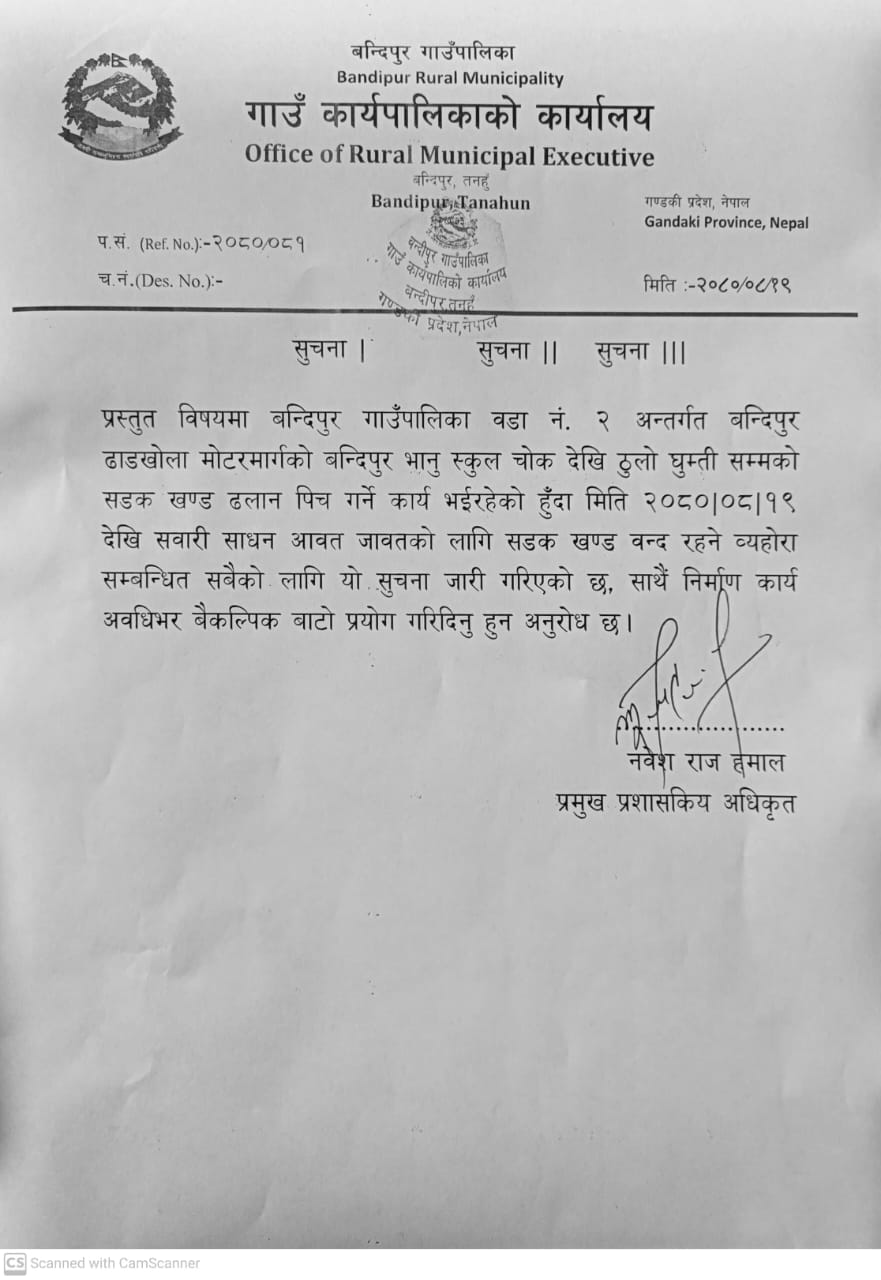 बन्दिपुर गाउँपालिका
Bandipur Rural Municipality
गाउँ कार्यपालिकाको कार्यालय
Office of Rural Municipal Executive
बन्दिपुर, तनहुँ
Bandipur, Tanahun
गण्डकी प्रदेश, नेपाल
Gandaki Province, Nepal
प.सं. (Ref. No.):-२०८०/०८१
च.नं.(Des. No.):-
मिति :-२०८०/०८/१९
बन्दीपुर गाउँपालिका
गाउँ कार्यपालिकाको कार्यालय
बन्दीपुर,तनहुँ
गण्डकी प्रदेश,नेपाल
सुचना | सुचना || सुचना |||
प्रस्तुत विषयमा बन्दिपुर गाउँपालिका वडा नं. २ अन्तर्गत बन्दिपुर
ढाडखोला मोटरमार्गको बन्दिपुर भानु स्कुल चोक देखि ठुलो घुम्ती सम्मको
सडक खण्ड ढलान पिच गर्ने कार्य भईरहेको हुँदा मिति २०८०|०८|१९
देखि सवारी साधन आवत जावतको लागि सडक खण्ड वन्द रहने व्यहोरा
सम्बन्धित सबैको लागि यो सुचना जारी गरिएको छ, साथैं निर्माण कार्य
अवधिभर बैकल्पिक बाटो प्रयोग गरिदिनु हुन अनुरोध छ।
नवेश राज हमाल
प्रमुख प्रशासकिय अधिकृत
CS Scanned with CamScanner